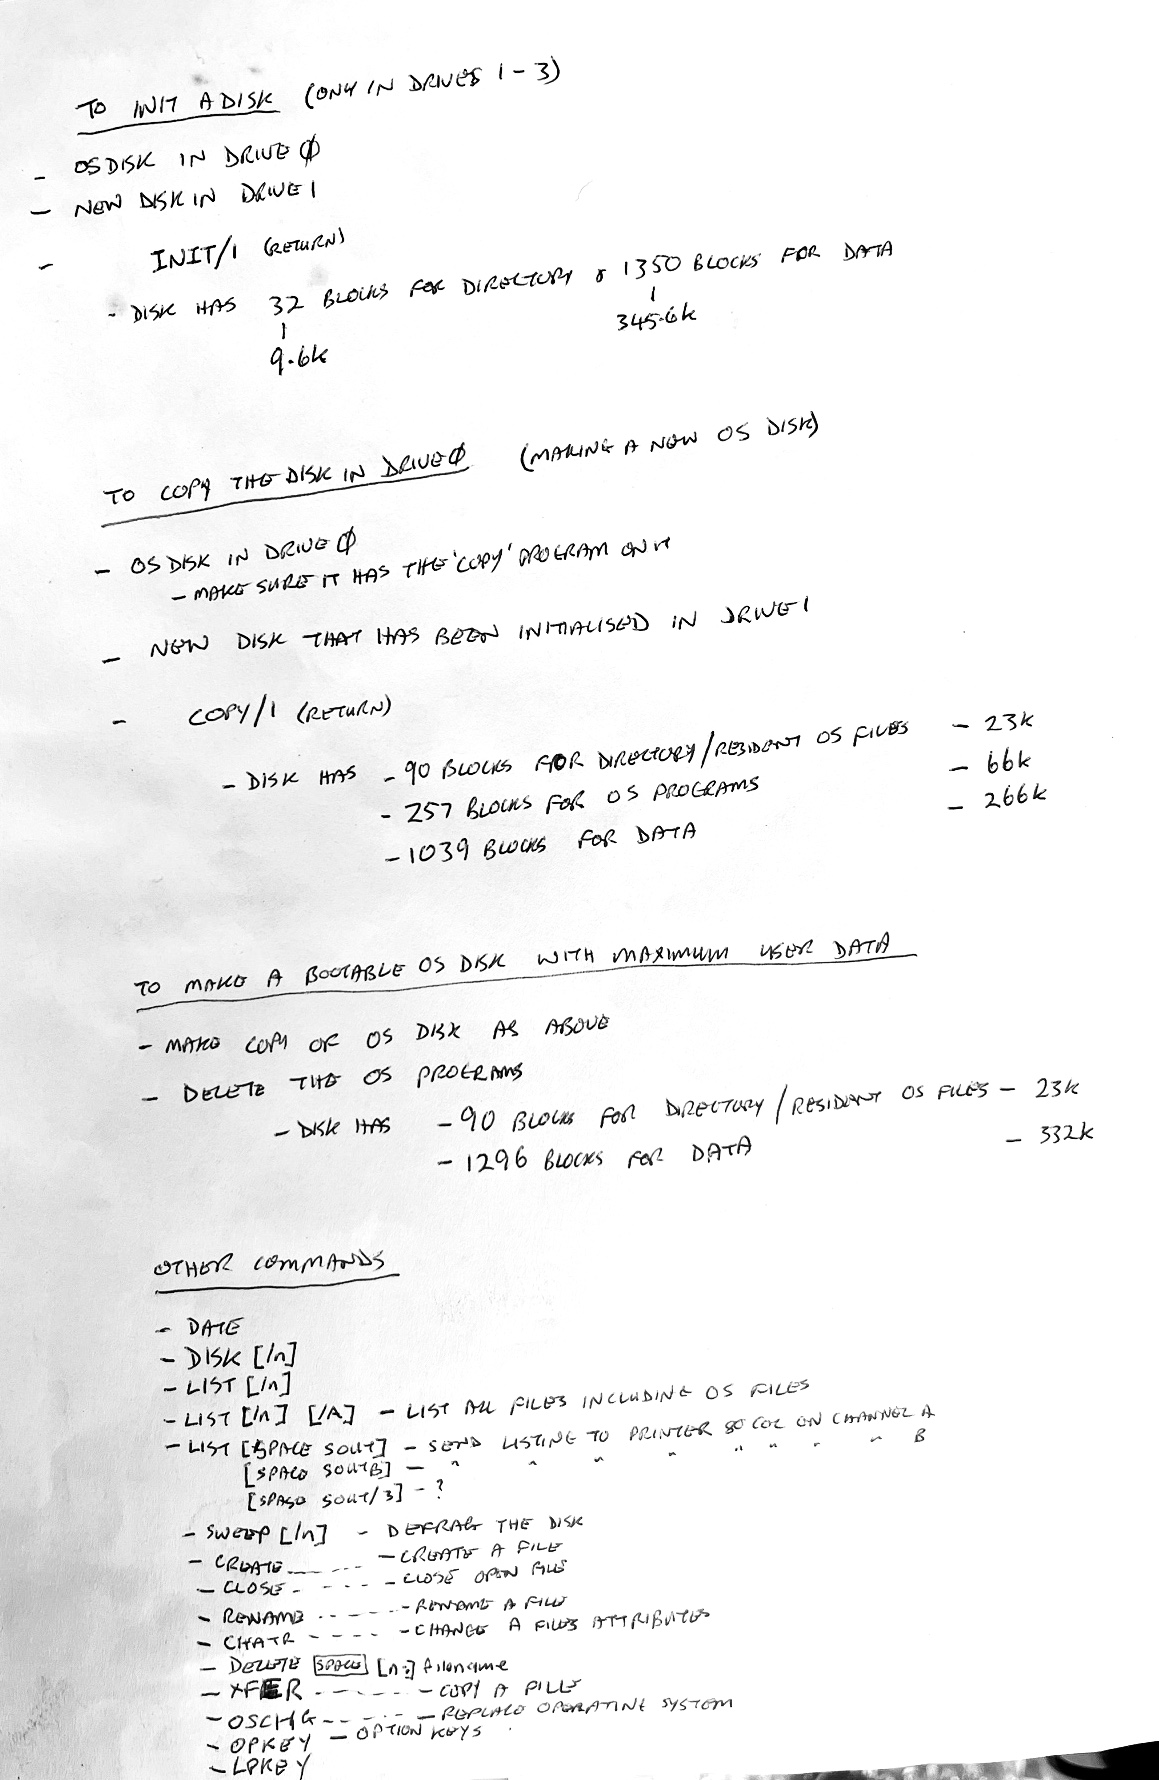 TO INIT A DISK (ONLY IN DRIVES 1-3)
- OS DISK IN DRIVE Ø
- NEW DISK IN DRIVE 1
- INIT/1 (RETURN)
- DISK HAS 32 BLOCKS FOR DIRECTORY & 1350 BLOCKS FOR DATA
9.6k 345.6k
TO COPY THE DISK IN DRIVE Ø (MAKING A NEW OS DISK)
- OS DISK IN DRIVE Ø
- MAKE SURE IT HAS THE 'COPY' PROGRAM ON IT
- NEW DISK THAT HAS BEEN INITIALISED IN DRIVE 1
- COPY/1 (RETURN)
- DISK HAS - 90 BLOCKS FOR DIRECTORY/RESIDENT OS FILES - 23k
- 257 BLOCKS FOR OS PROGRAMS - 66k
- 1039 BLOCKS FOR DATA - 266k
TO MAKE A BOOTABLE OS DISK WITH MAXIMUM USER DATA
- MAKE COPY OF OS DISK AS ABOVE
- DELETE THE OS PROGRAMS
- DISK HAS - 90 BLOCKS FOR DIRECTORY/RESIDENT OS FILES - 23k
- 1296 BLOCKS FOR DATA - 332k
OTHER COMMANDS
- DATE
- DISK [/n]
- LIST [/n]
- LIST [/n] [/A] - LIST ALL FILES INCLUDING OS FILES
- LIST [SPACE SOUT] - SEND LISTING TO PRINTER 80 COL ON CHANNEL A
[SPACE SOUTB] - " " " " " " " " B
[SPACE SOUT/3] - ?
- SWEEP [/n] - DEFRAG THE DISK
- CREATE ------ - CREATE A FILE
- CLOSE - - - - - - CLOSE OPEN FILE
- RENAME ------ - RENAME A FILE
- CHATR - - - - - - CHANGE A FILES ATTRIBUTES
- DELETE SPACE [n:] filename
- XFER - - - - - - - COPY A FILE
- OSCHG - - - - - - REPLACE OPERATING SYSTEM
- OPKEY - OPTION KEYS
- LPKEY